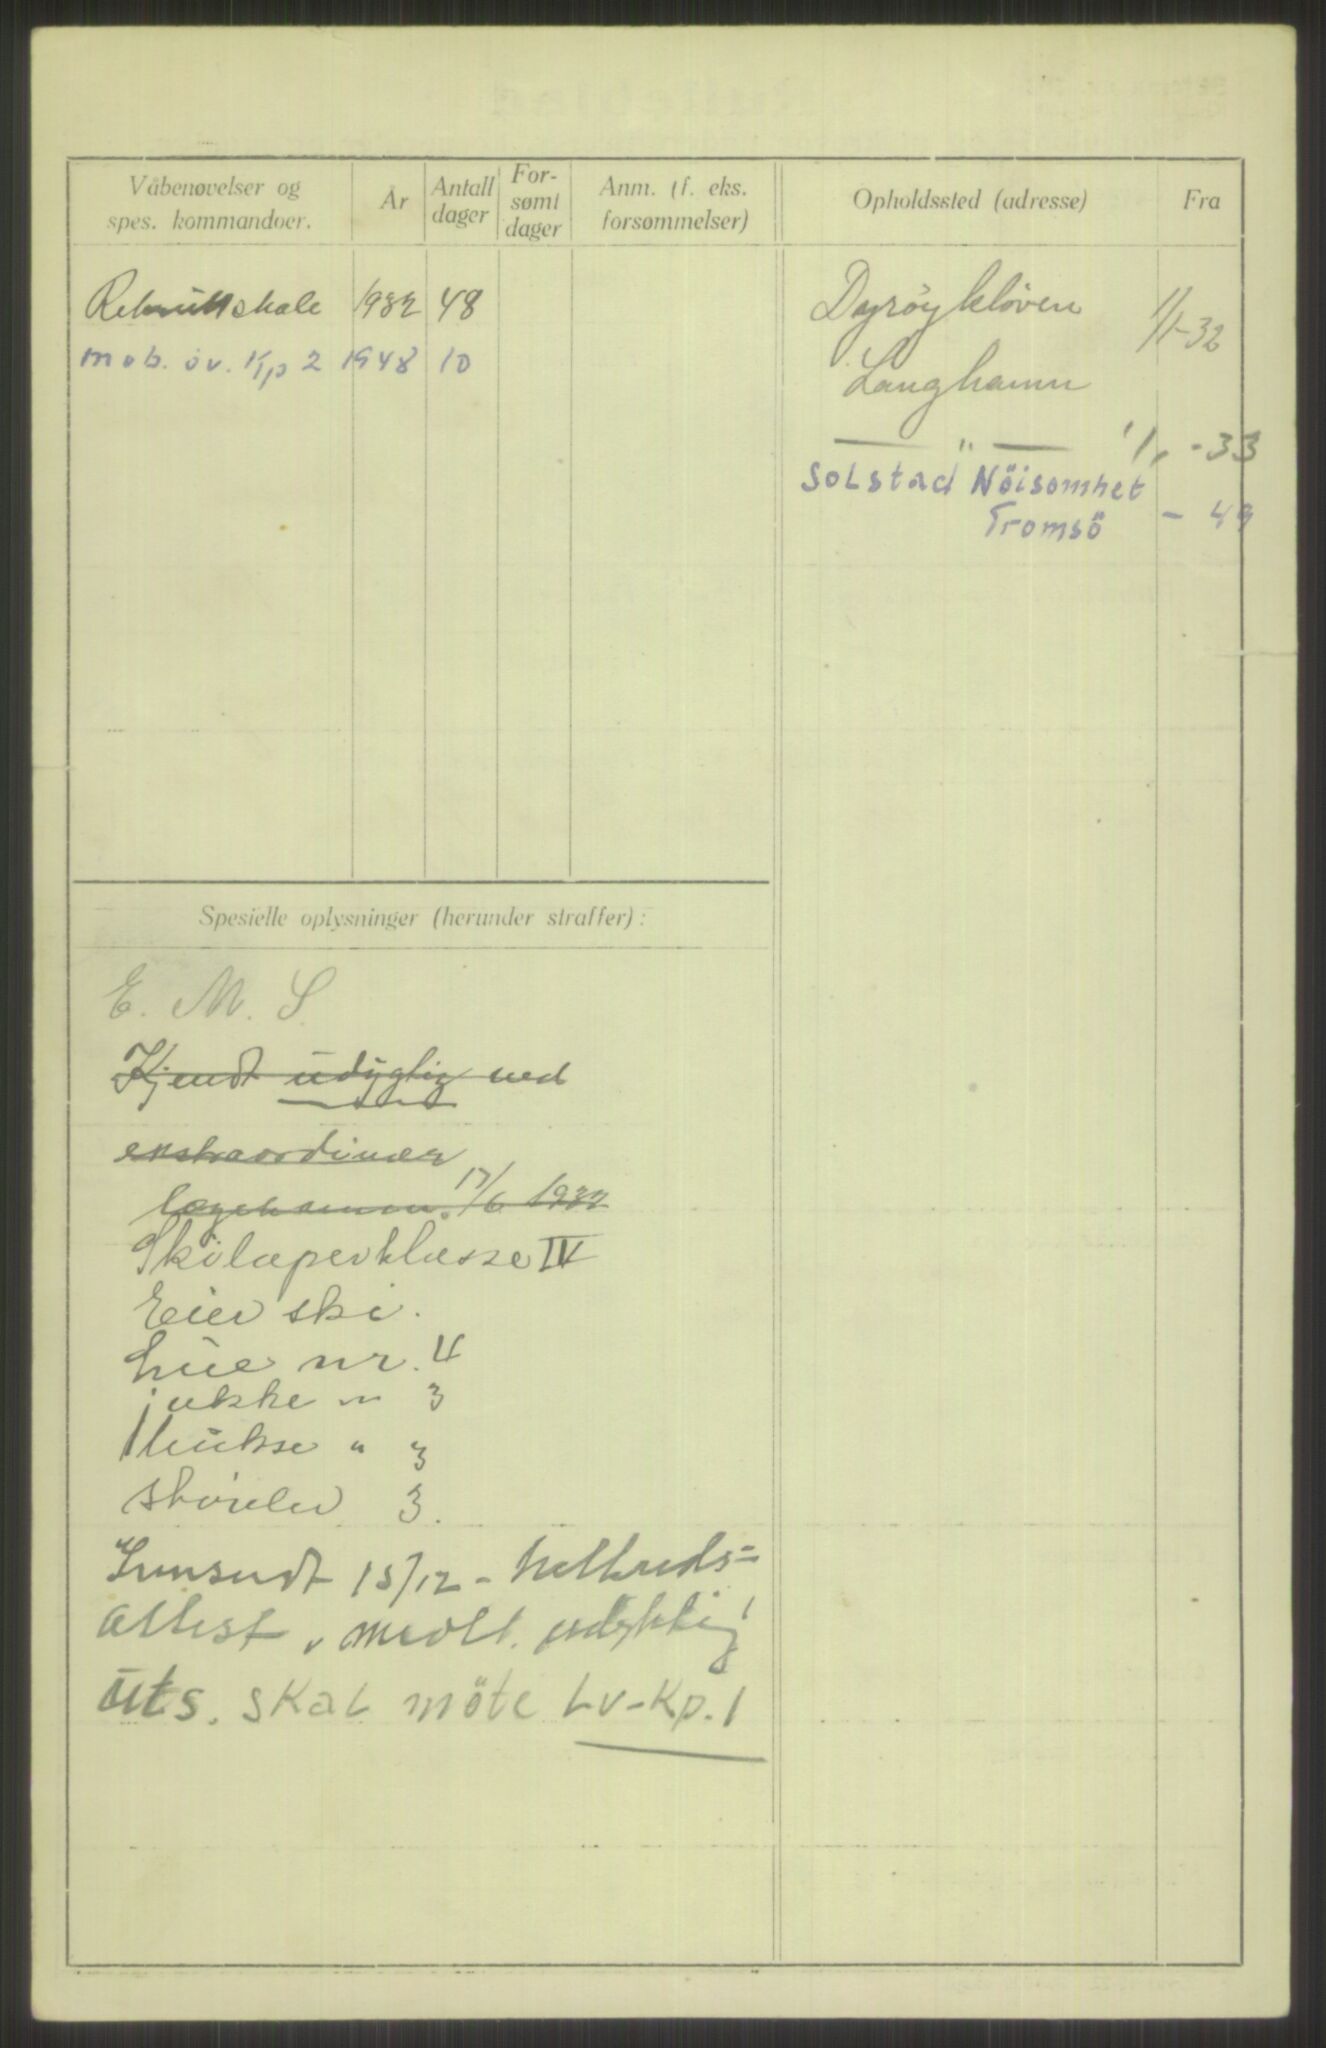 Våbenøvelser og
spes. kommandoer.
År
Antall
dager
For-
sømt
dager
Anm. (f. eks.
forsømmelser)
Opholdssted (adresse)
Fra
Rekruttskole 1932 48
mob. öv. Kp 2 1948 10
Dyrøykløven 1/1-32
Langhamn
— " — 1/1 -33
Solstad Nöisomhet
Tromsö - 49
Spesielle oplysninger (herunder straffer) :
E. M. S
Kjendt udygtig ved
ekstraordinær
17/6 1932
Skiløperklasse IV
Eier ski.
Lue nr. 4
jakke " 3
bukse " 3
støvler 3.
Innsendt 15/12 - helbreds-
attest, udyktig
Uts. skal möte Lv-Kp. 1